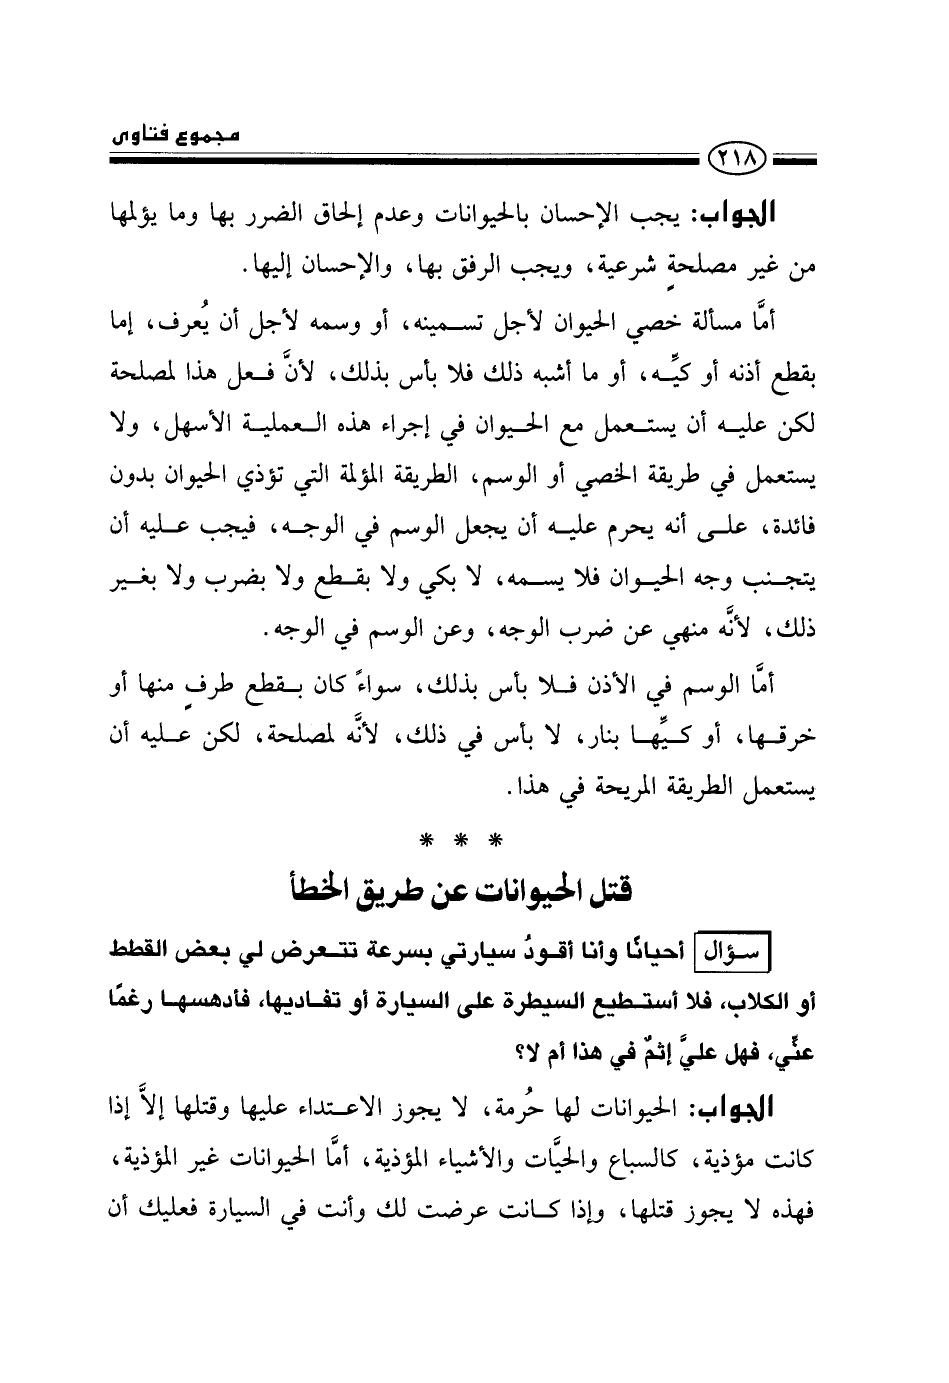 مجموع فتاوى
٢١٨
الجواب: يجب الإحسان بالحيوانات وعدم إلحاق الضرر بها وما يؤلمها
من غير مصلحةٍ شرعية، ويجب الرفق بها، والإحسان إليها.
أمَّا مسألة خصي الحيوان لأجل تسمينه، أو وسمه لأجل أن يُعرف، إما
بقطع أذنه أو كيِّه، أو ما أشبه ذلك فلا بأس بذلك، لأنَّ فعل هذا لمصلحة
لكن عليه أن يستعمل مع الحيوان في إجراء هذه العملية الأسهل، ولا
يستعمل في طريقة الخصي أو الوسم، الطريقة المؤلمة التي تؤذي الحيوان بدون
فائدة، على أنه يحرم عليه أن يجعل الوسم في الوجه، فيجب عليه أن
يتجنب وجه الحيوان فلا يسمه، لا بكي ولا بقطع ولا بضرب ولا بغير
ذلك، لأنَّه منهي عن ضرب الوجه، وعن الوسم في الوجه.
أمَّا الوسم في الأذن فلا بأس بذلك، سواءً كان بقطع طرفٍ منها أو
خرقها، أو كيِّها بنار، لا بأس في ذلك، لأنَّه لمصلحة، لكن عليه أن
يستعمل الطريقة المريحة في هذا.
* * *
قتل الحيوانات عن طريق الخطأ
سؤال أحيانًا وأنا أقودُ سيارتي بسرعة تتعرض لي بعض القطط
أو الكلاب، فلا أستطيع السيطرة على السيارة أو تفاديها، فأدهسها رغمًا
عنِّي، فهل عليَّ إثمٌ في هذا أم لا؟
الجواب: الحيوانات لها حُرمة، لا يجوز الاعتداء عليها وقتلها إلاَّ إذا
كانت مؤذية، كالسباع والحيَّات والأشياء المؤذية، أمَّا الحيوانات غير المؤذية،
فهذه لا يجوز قتلها، وإذا كانت عرضت لك وأنت في السيارة فعليك أن